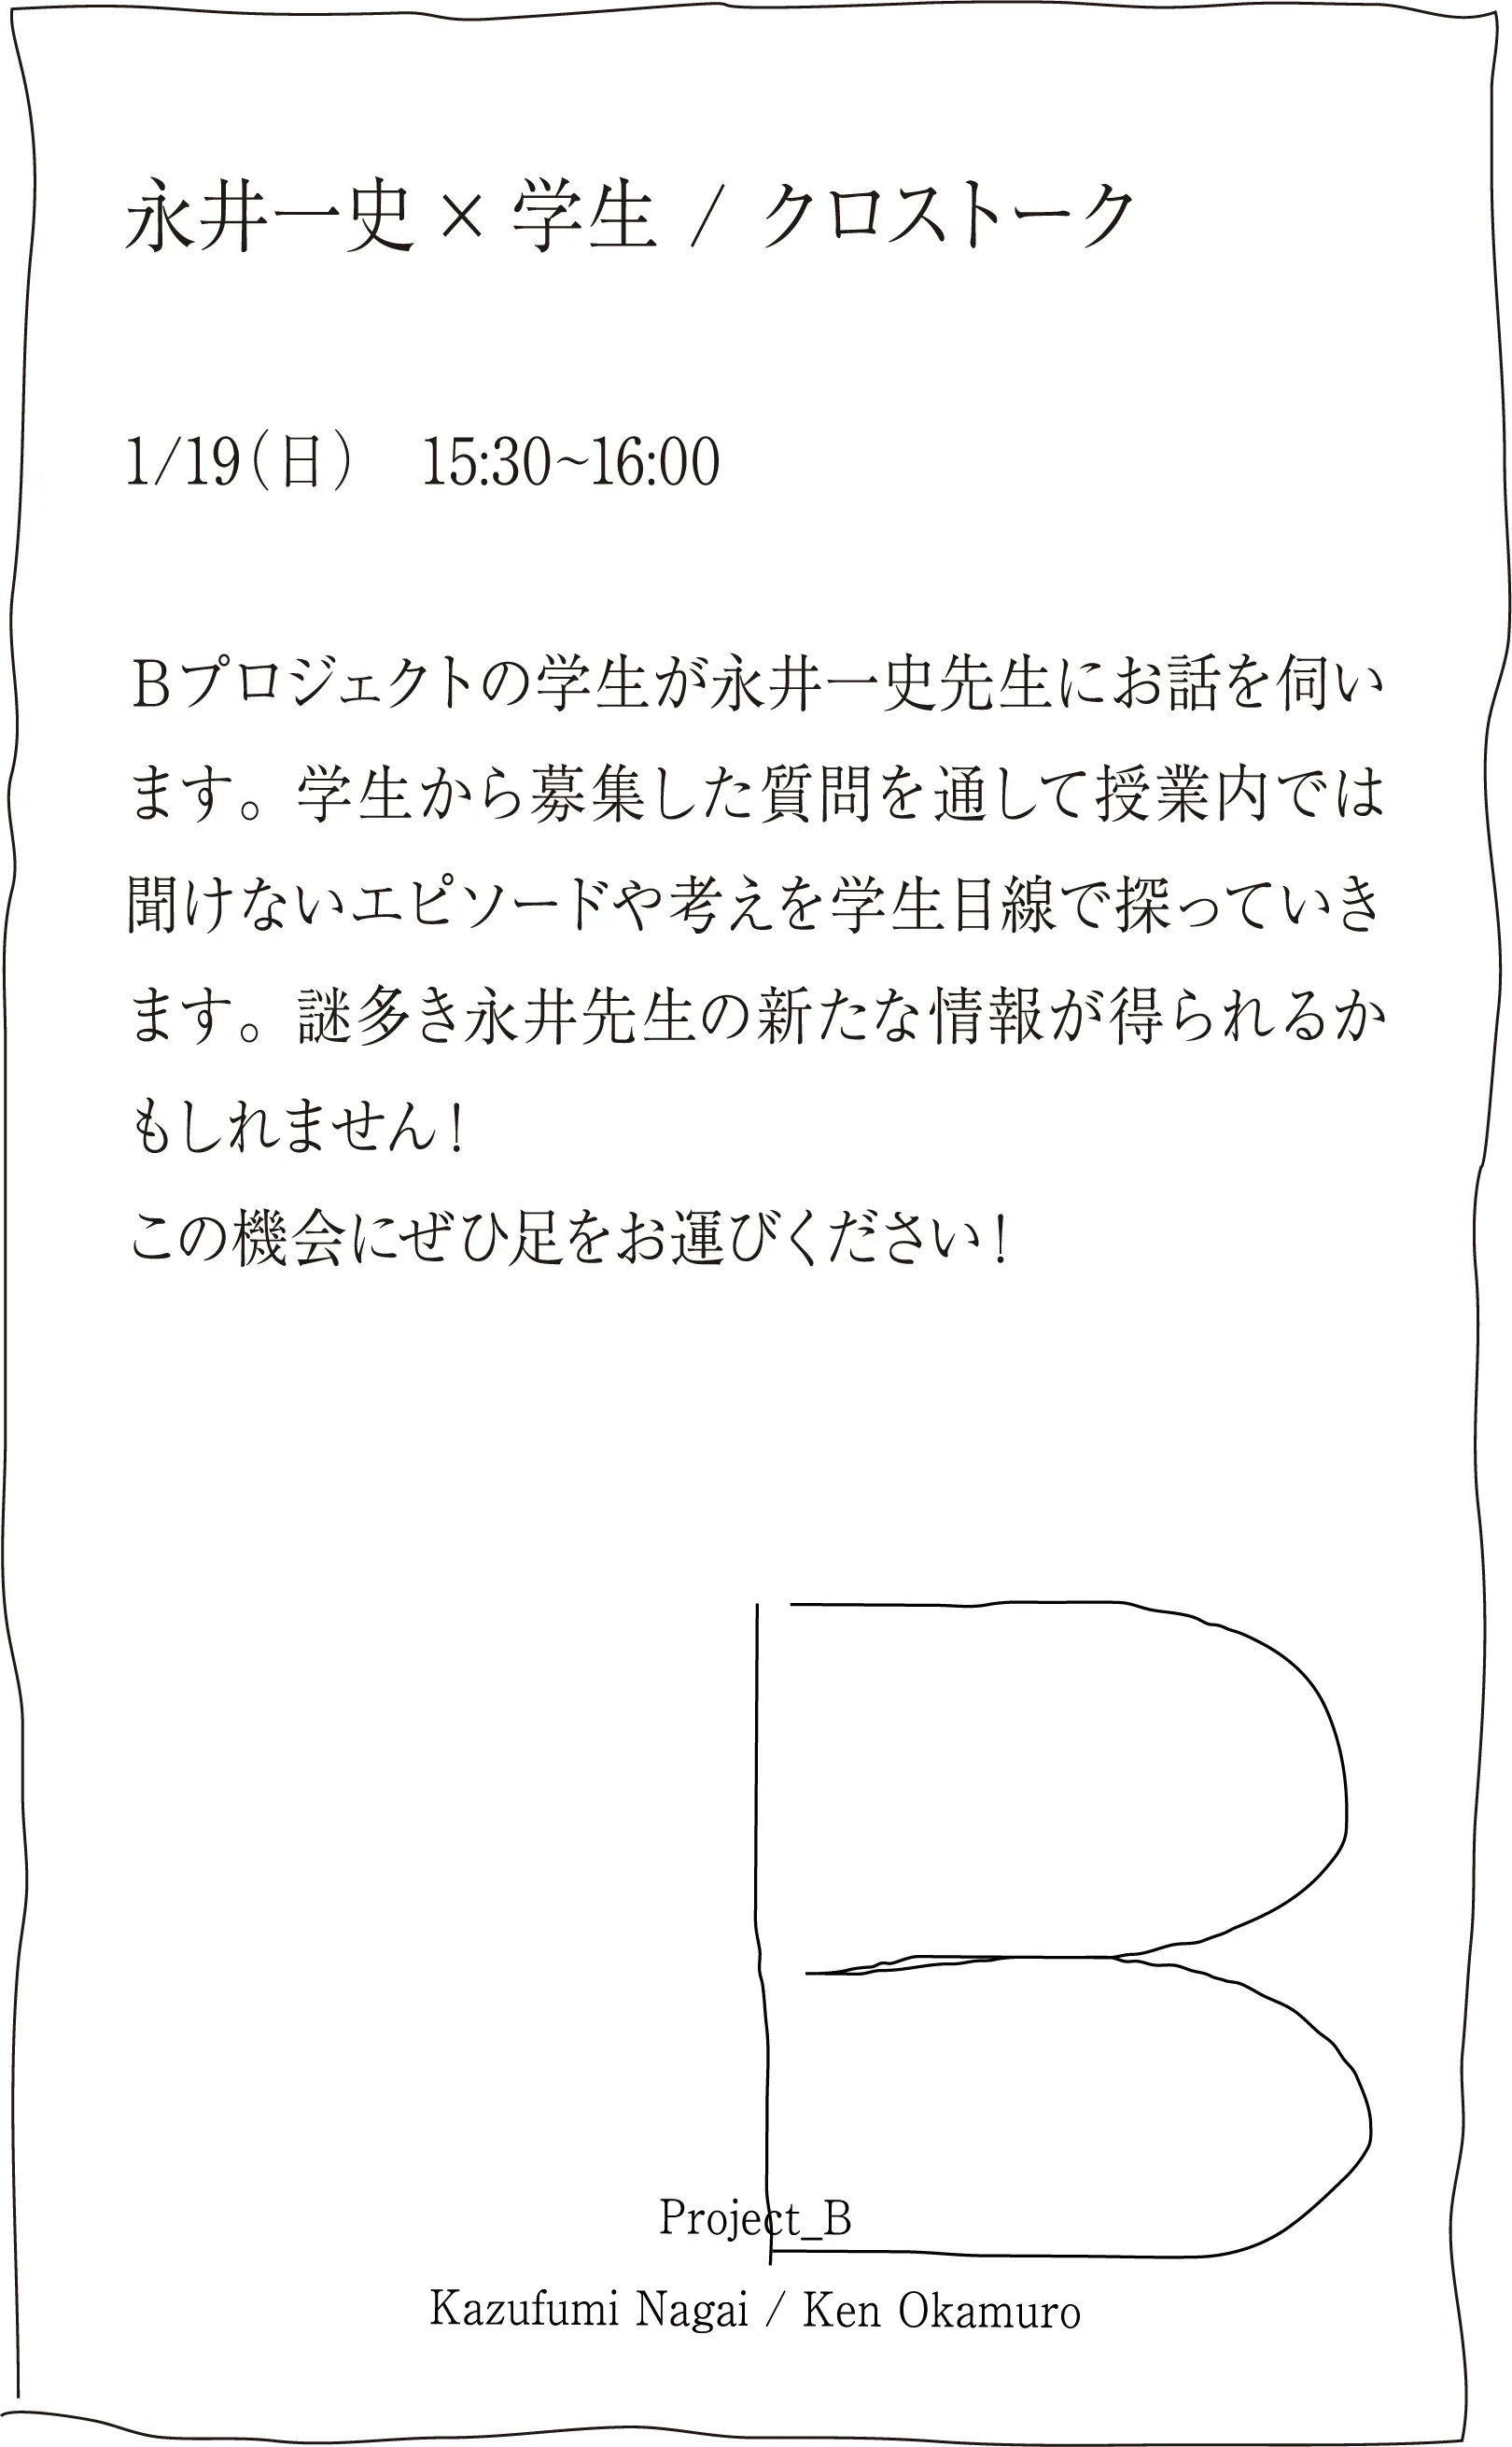 永井一史 × 学生 / クロストーク
1/19(日) 15:30~16:00
Bプロジェクトの学生が永井一史先生にお話を伺い
ます。学生から募集した質問を通して授業内では
聞けないエピソードや考えを学生目線で探っていき
ます。謎多き永井先生の新たな情報が得られるか
もしれません!
この機会にぜひ足をお運びください!
B
Project_B
Kazufumi Nagai / Ken Okamuro